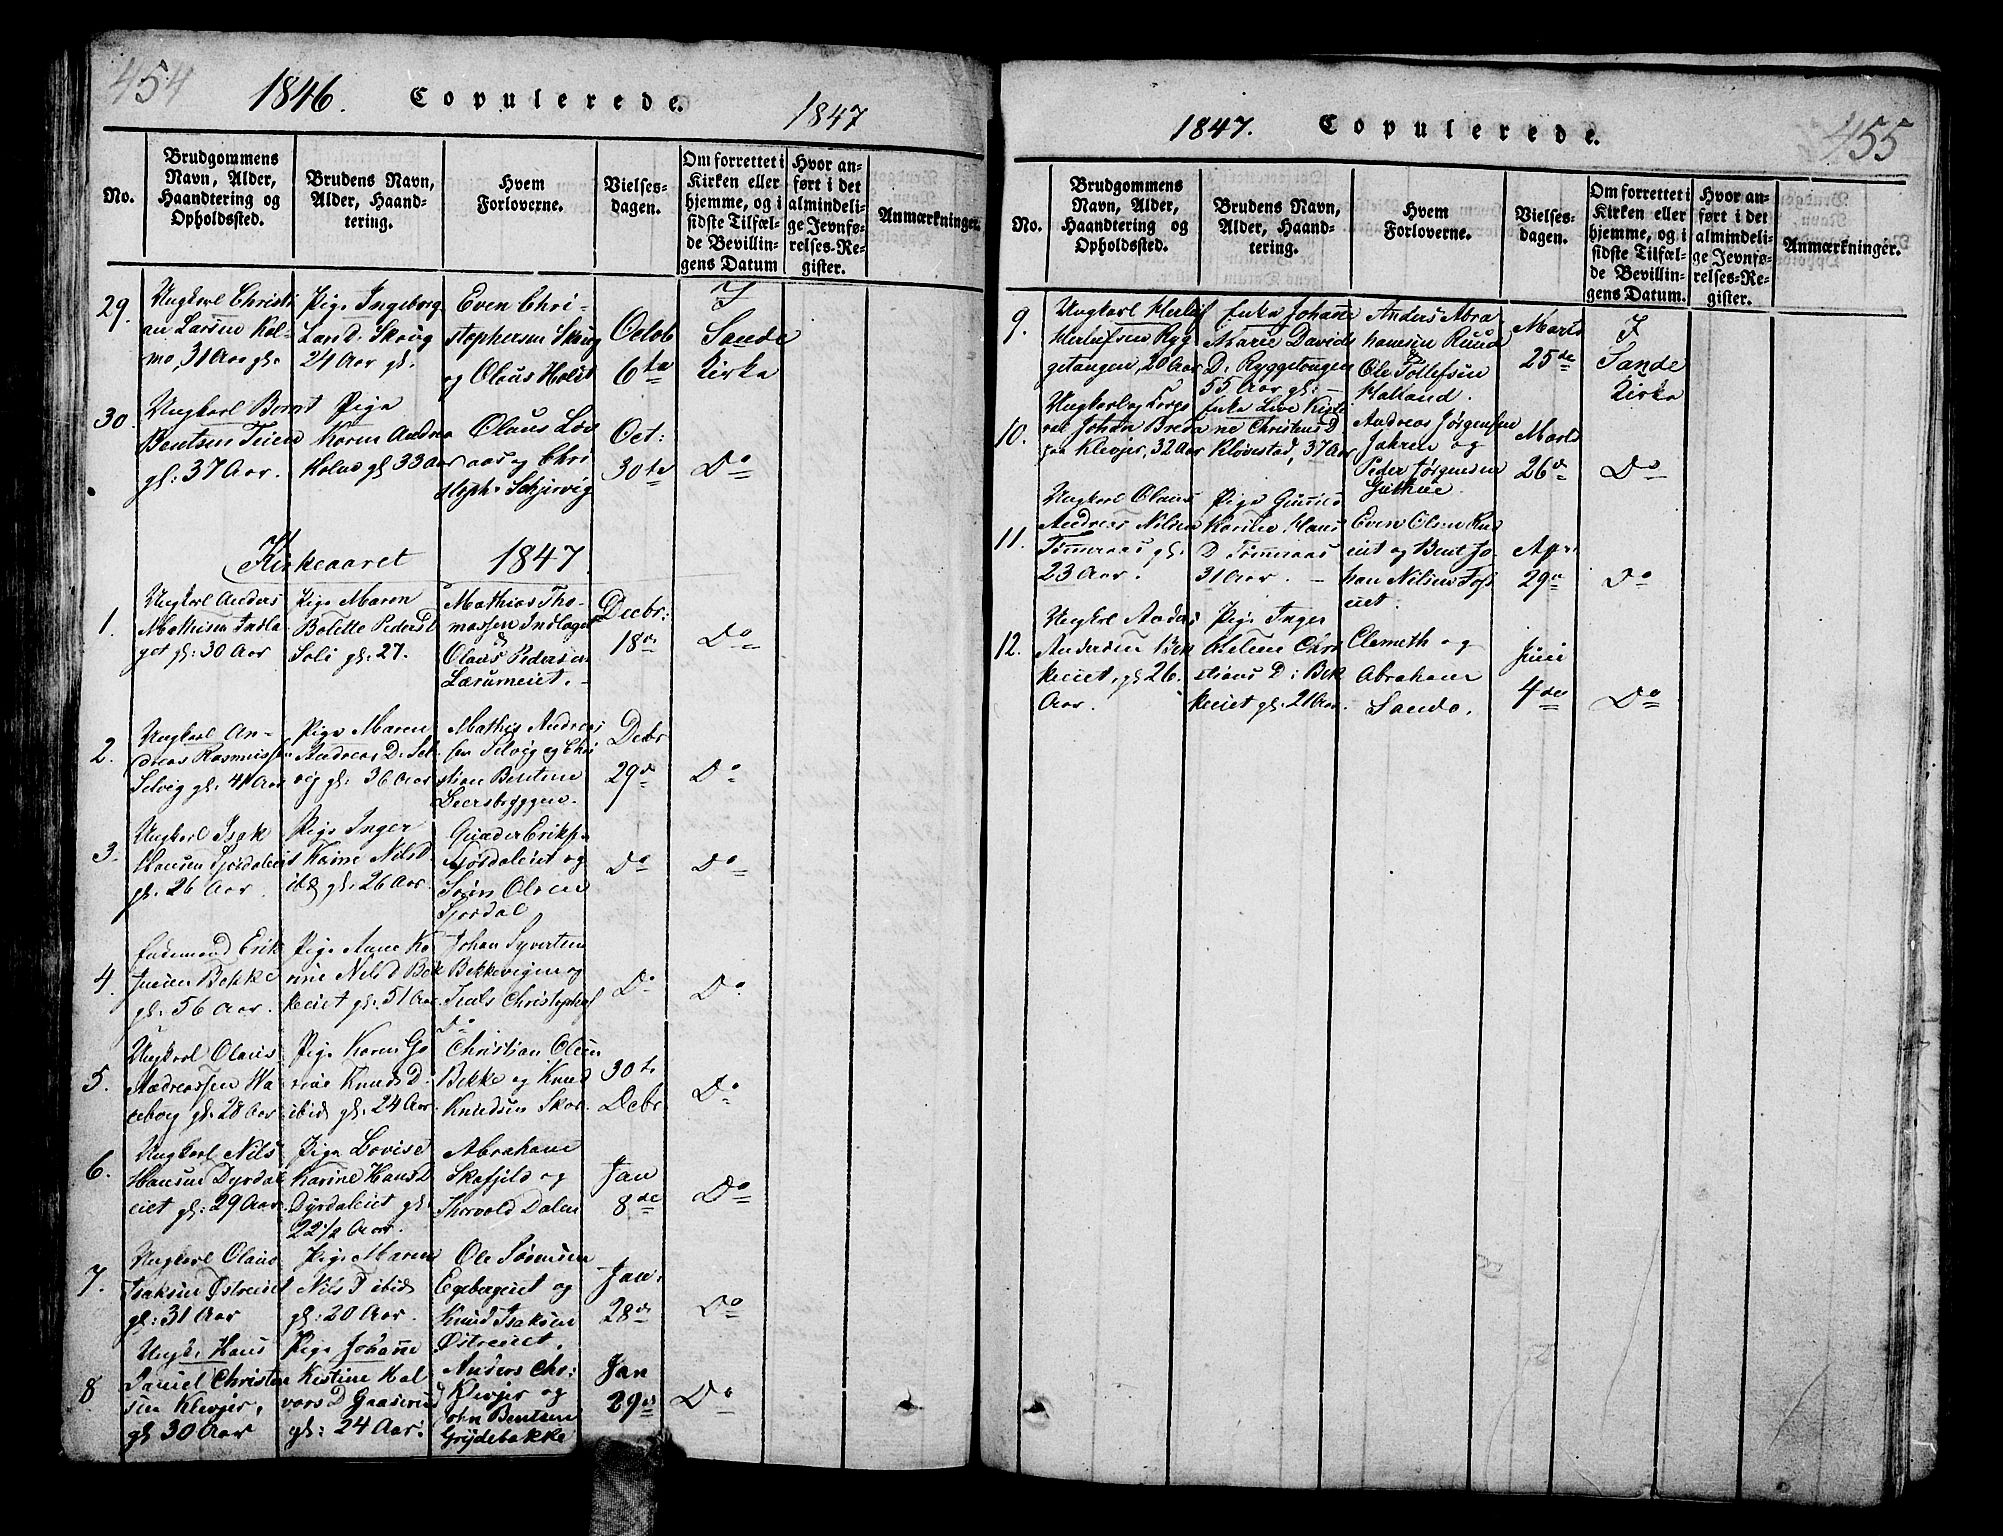 454
1846. Copulerede. 1847
No.
Brudgommens Navn, Alder, Haandtering og Opholdssted.
Brudens Navn, Alder, Haandtering.
Hvem Forloverne.
Vielsesdagen.
Om forrettet i Kirken eller hjemme, og i sidste Tilfælde Bevillingens Datum
Hvor anført i det almindelige Jevnførelses-Register.
Anmærkninger.
29.
Ungkarl Christi
an Larsen Hol-
mo, 31 Aar gl.
Pige Ingeborg
Lars D. Skoug
24 Aar gl.
Even Chri-
stophersen Skoug
og Olaus Holst
Octob
6te
I
Sande
Kirke
30.
Ungkarl Bernt
Bentsen Teien
gl: 37 Aar.
Pige
Karen Andrea
gl 33 Aar
Olaus
aas og Chri
stoph.
Oct:
30te
Do
Kirkeaaret 1847.
1.
Ungkarl Anders
Mathisen Indla
get gl: 30 Aar
Pige Maren
Bolette Peders D
Soli gl: 27.
Mathias Tho-
massen Indlaget
&
Olaus Pedersen
Lærumeiet.
Decbr:
18de
Do
2.
Ungkarl An-
dreas Rasmussen
Selvig gl: 41 Aar
Pige Maren
Andreas D. Sel
vig gl: 36 Aar
Mathis Andreas
sen Selvig og Chri
stian Bentsen
Leersbryggen.
Decbr
29de
Do
3.
Ungkarl Isak
Hansen Fjordaleiet
gl: 26 Aar.
Pige Inger
Karine Nils D.
ibid gl: 26 Aar.
Gunder Eriks.
og
Sørn Olsen
Do
Do
4.
Enkemand Erik
Bekke
gl: 56 Aar.
Pige Anne Ka
rine Nils D Bek
keiet gl: 51 Aar
Johan Syvertsen
Bekkevigen og
Christophers
Do
Do
Do
5.
Ungkarl Olaus
Andreassen
gl: 28 Aar
Pige Karen
Knuds D.
ibid gl: 24 Aar.
Christian Olsen
Bekke og Knud
Knudsen
30te
Decbr
Do
6.
Ungkarl Nils
Hansen Dyrdal
eiet gl: 29 Aar.
Pige Lovise
Karine Hans D
Dyrdaleiet gl.
22 1/2 Aar.
Abraham
Skafjeld og
Thorvald Dalen
Jan
8de
Do
7.
Ungkarl Olaus
Isaksen Østreeiet
gl: 31 Aar
Pige Maren
Nils D ibid
gl: 20 Aar.
Ole Sørensen
Egebergeiet og
Knud Isaksen
Østreeiet.
Jan.
28de
Do
8
Ungk. Hans
Daniel Christen
sen Klevjer,
gl 30 Aar
Pige Johanne
Kistine Hal
vors D Gaaserud
gl: 24 Aar.
Anders Chr:
Klevjer og
John Bentsen
Grydebakke
Jan
29de
Do
1847. Copulerede. 455
No.
Brudgommens Navn, Alder, Haandtering og Opholdssted.
Brudens Navn, Alder, Haandtering.
Hvem Forloverne.
Vielsesdagen.
Om forrettet i Kirken eller hjemme, og i sidste Tilfælde Bevillingens Datum.
Hvor anført i det almindelige Jevnførelses-Register.
Anmærkninger.
9.
Ungkarl Herlof
Herlufsen Ryg
getangen, 20 Aar
Enke Johanne
Marie Davids
D. Ryggetangen
55 Aar gl:
Anders Abra
hamsen Ruud
&
Ole Tollefsen
Marts
25de
I
Sande
Kirke
10.
Ungkarl og
Johan Breda
paa Klevjer, 32 Aar
Enke Live Kisti
ne Christens D
Kløvestad, 37 Aar
Andreas Jørgensen
og
Peder Jørgensen
Marts
26de
Do
11.
Ungkarl Olaus
Andreas Nilsen
Tømmeraas gl:
23 Aar.
Pige Gunild
Karine Hans
D Tømmeraas
31 Aar.
Even Olsen
eiet og Bent Jo
han Nilsen
eiet.
Apr.
29de
Do
12.
Ungkarl Anders
Andersen Bek
keeiet, gl 26.
Aar.
Pige Inger
Helene Chri
stians D: Bek
keeiet gl: 21 Aar.
Clemeth og
Abraham
Sande.
Juni
4de
Do